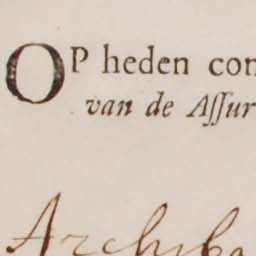 OP heden con
van de Aſſur
Archiba